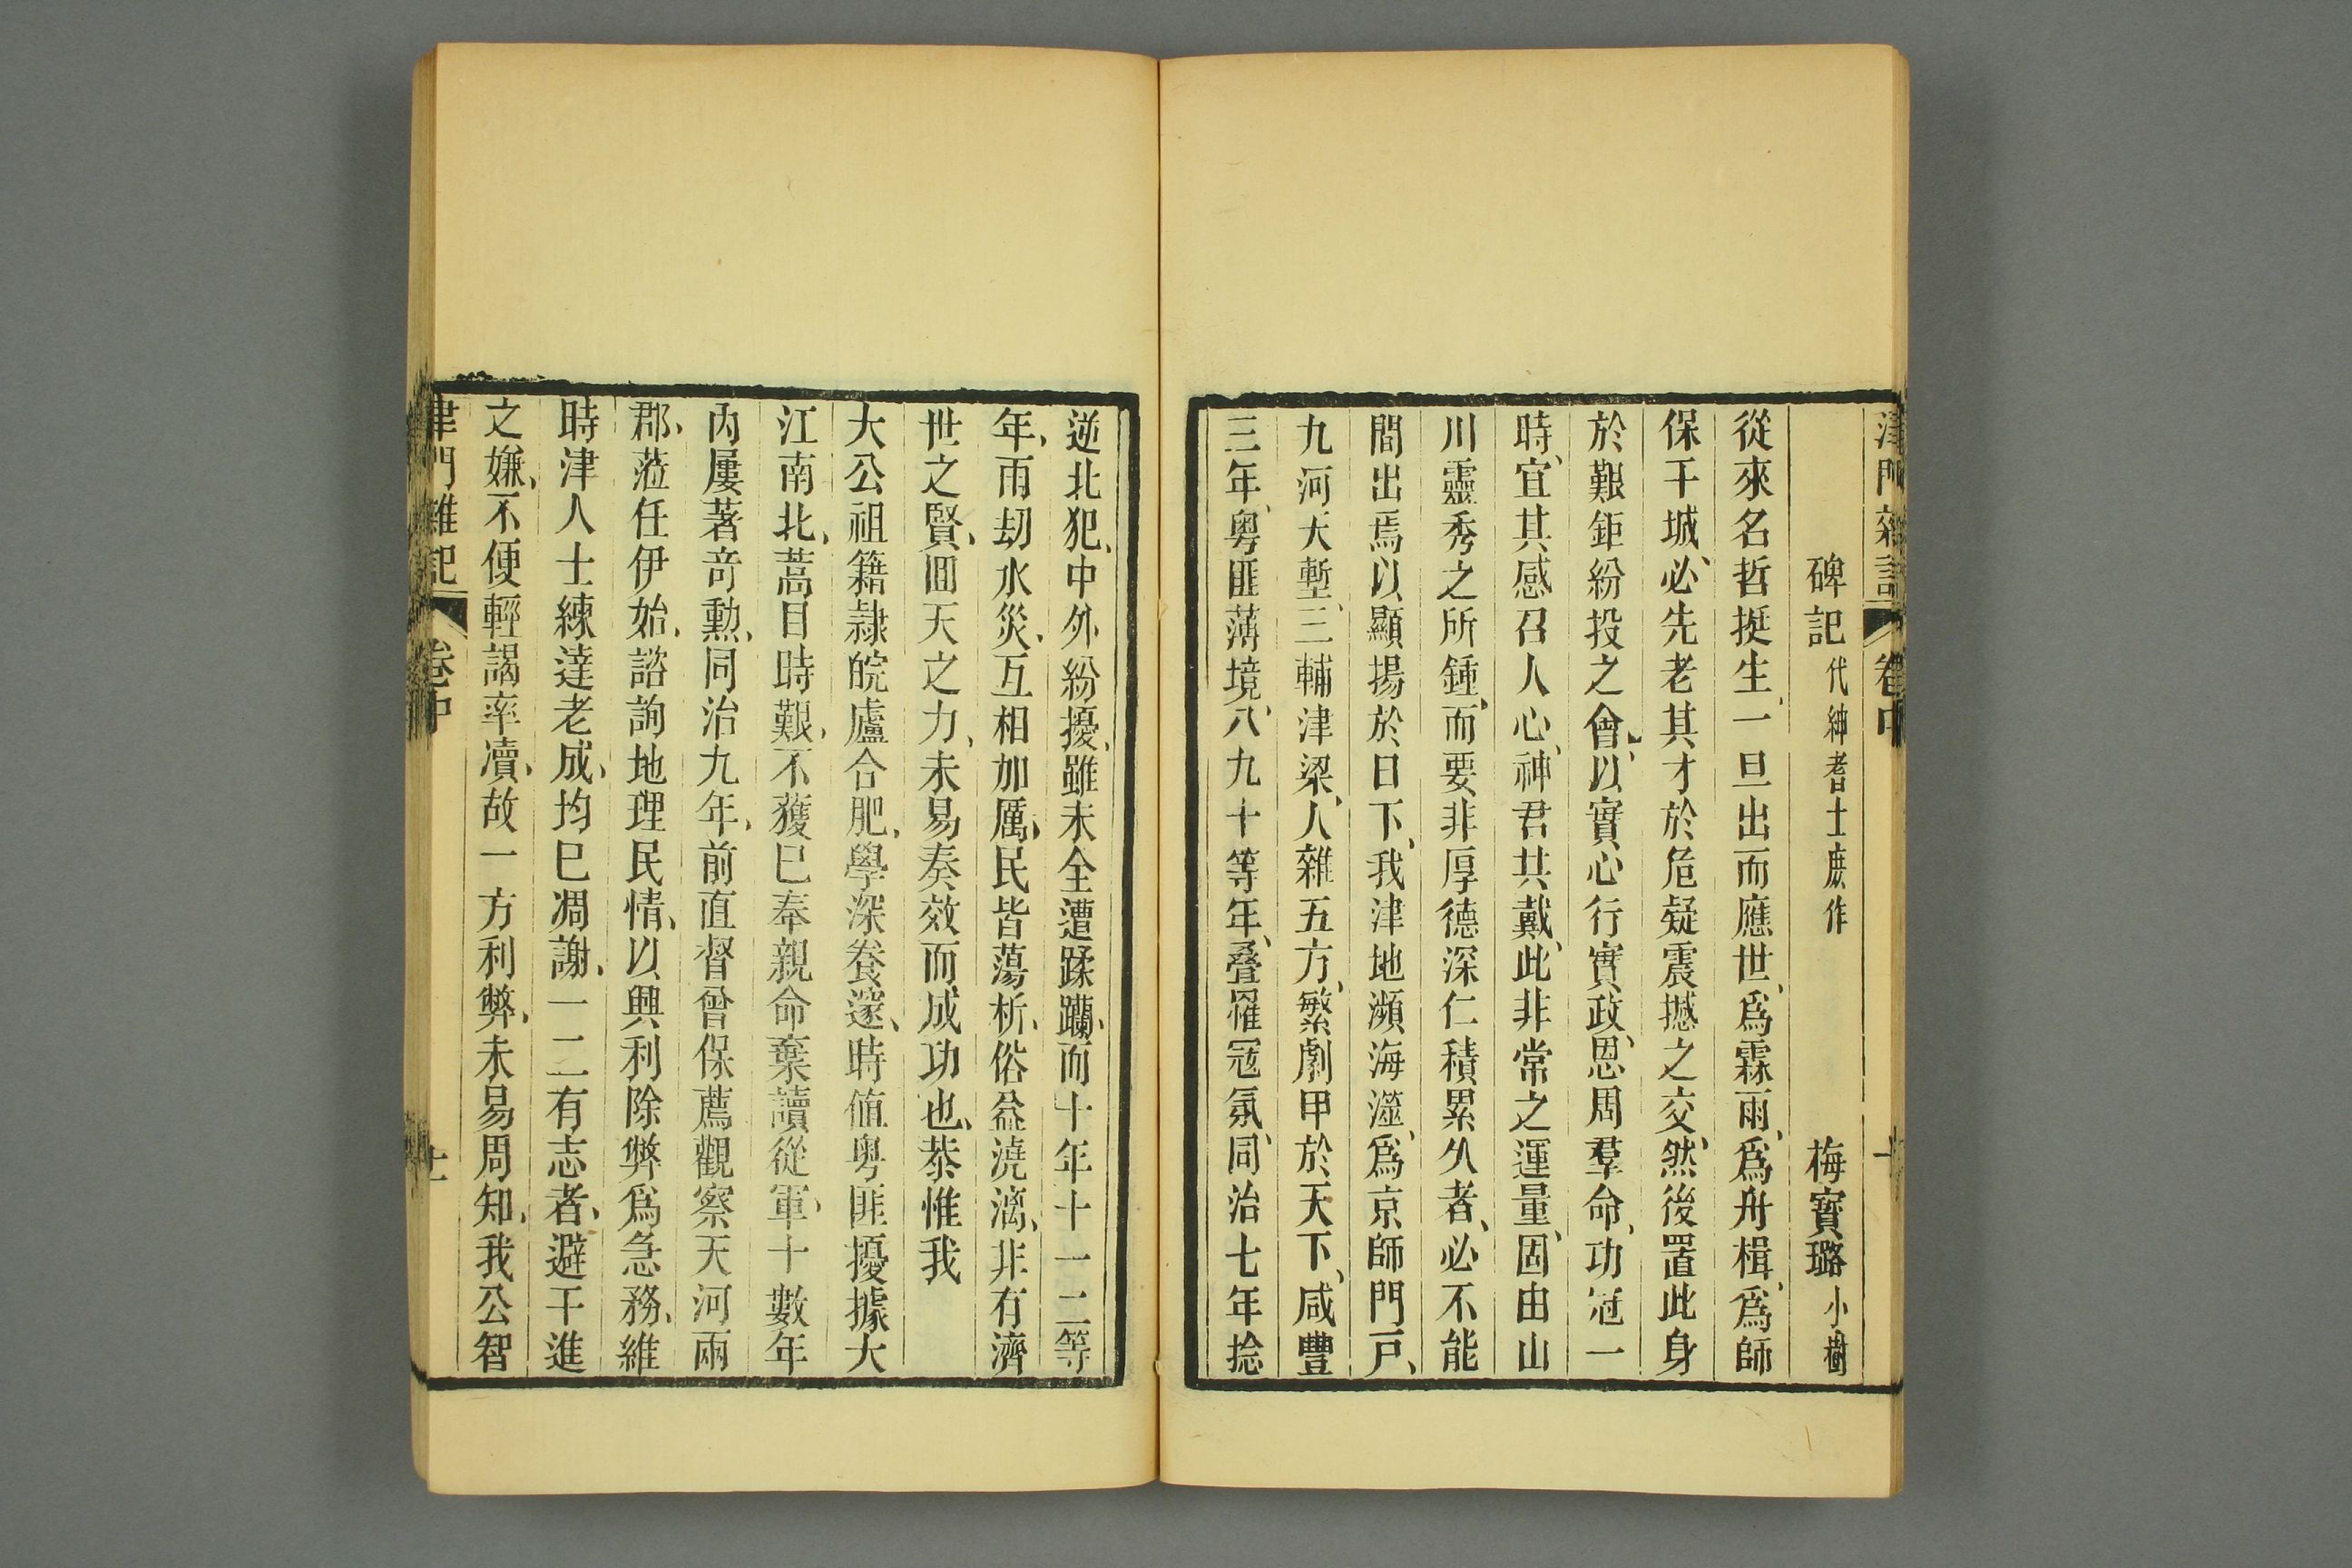 津門雜記 卷中
碑記 代紳耆士庶作 梅寶璐 小樹
從來名哲挺生、一旦出而應世、爲霖雨、爲舟楫、爲師
保干城、必先老其才於危疑震撼之交、然後置此身
於艱鉅紛投之會、以實心行實政、恩周羣命、功冠一
時、宜其感召人心、神君共戴、此非常之運量、固由山
川靈秀之所鍾、而要非厚德深仁積累久者、必不能
間出焉以顯揚於日下、我津地瀕海澨、爲京師門戸、
九河天塹、三輔津梁、人雜五方、繁劇甲於天下、咸豐
三年、粵匪薄境、八九十等年、叠罹寇氛、同治七年捻
逆北犯、中外紛擾、雖未全遭蹂躪、而十年十一二等
年、雨刼水災、互相加厲、民皆蕩析、俗益澆漓、非有濟
世之賢、囬天之力、未易奏效而成功也、恭惟我
大公祖籍隸皖廬合肥、學深養邃、時值粵匪擾據大
江南北、蒿目時艱、不獲已奉親命棄讀從軍、十數年
內屢著奇勳、同治九年、前直督曾保薦觀察天河兩
郡、蒞任伊始、諮詢地理民情、以興利除弊爲急務、維
時津人士練達老成、均已凋謝、一二有志者、避干進
之嫌、不便輕謁率凟、故一方利弊、未易周知、我公智
津門雜記 卷中 十一